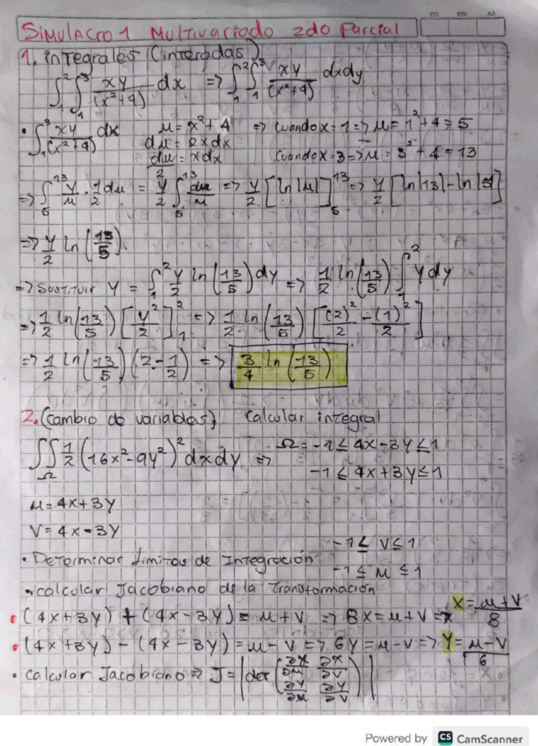 Simulacro 1 Multivariado 2do Parcial
1. integrales (interadas)
∫₁²∫₁³ xy/(x²+4) dx => ∫₁²∫₁³ xy/(x²+4) dxdy
• ∫₁³ xy/(x²+4) dx u = x²+4 => cuando x=1 => u=1²+4=5
du = 2xdx
du/2 = xdx cuando x=3 => u=3²+4=13
=> ∫₅¹³ y/u · 1/2 du = y/2 ∫₅¹³ du/u => y/2 [ln|u|]₅¹³ => y/2 [ln|13|-ln|5|]
=> y/2 ln(13/5)
=> Sustituir y = ∫₁² y/2 ln(13/5) dy => 1/2 ln(13/5) ∫₁² y dy
=> 1/2 ln(13/5) [y²/2]₁² => 1/2 ln(13/5) [(2)²/2 - (1)²/2]
=> 1/2 ln(13/5) (2-1/2) => 3/4 ln(13/5)
2. (cambio de variables) calcular integral
∫∫Ω 1/2 (16x²-9y²)² dxdy => Ω = -1≤4x-3y≤1
-1≤4x+3y≤1
u=4x+3y
v=4x-3y
-1≤v≤1
• Determinar limitas de Integración
-1≤u≤1
• calcular Jacobiano de la transformación
• (4x+3y)+(4x-3y)=u+v => 8x=u+v => x=u+v/8
• (4x+3y)-(4x-3y)=u-v => 6y=u-v => y=u-v/6
• calcular Jacobiano => J=|det(∂x/∂u ∂x/∂v ∂y/∂u ∂y/∂v)|
Powered by CS CamScanner